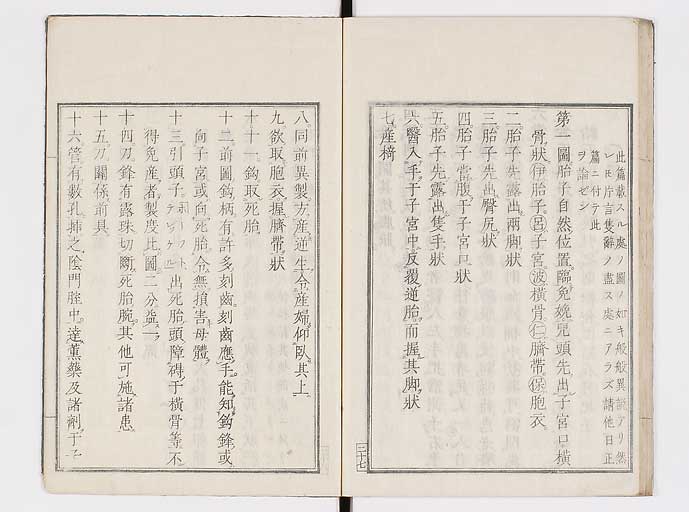 此篇載スル處ノ圖ノ如キ般般異説アリ然
レ𪜈片言隻辭ノ盡ス處ニアラズ請他日正
篇ニ付テ此
ヲ論ゼン
第一圖胎子自然位置臨免娩兒頭先出子宮口横
骨狀伊胎子呂子宮波横骨仁臍帶保胞衣
二胎子先露出兩脚狀
三胎子先出臀尻狀
四胎子當腹于子宮口狀
五胎子先露出隻手狀
六醫入手于子宮中反覆逆胎而握其脚狀
七産椅
三十七
八同前異製方産逆生令産婦仰臥其上
九欲取胞衣握臍帶狀
十十一鈎取死胎
十二前圖鈎柄有許多刻齒刻齒應手能知鈎鋒或
向子宮或向死胎令無損害母體
十三引頭子出死胎頭障碍于横骨等不
得免産者製度比圖二分益一
十四刀鋒有露珠切斷死胎腕其他可施諸患
十五刀關係前具
十六管有數孔挿之陰門腟中達薫藥及諸劑于子